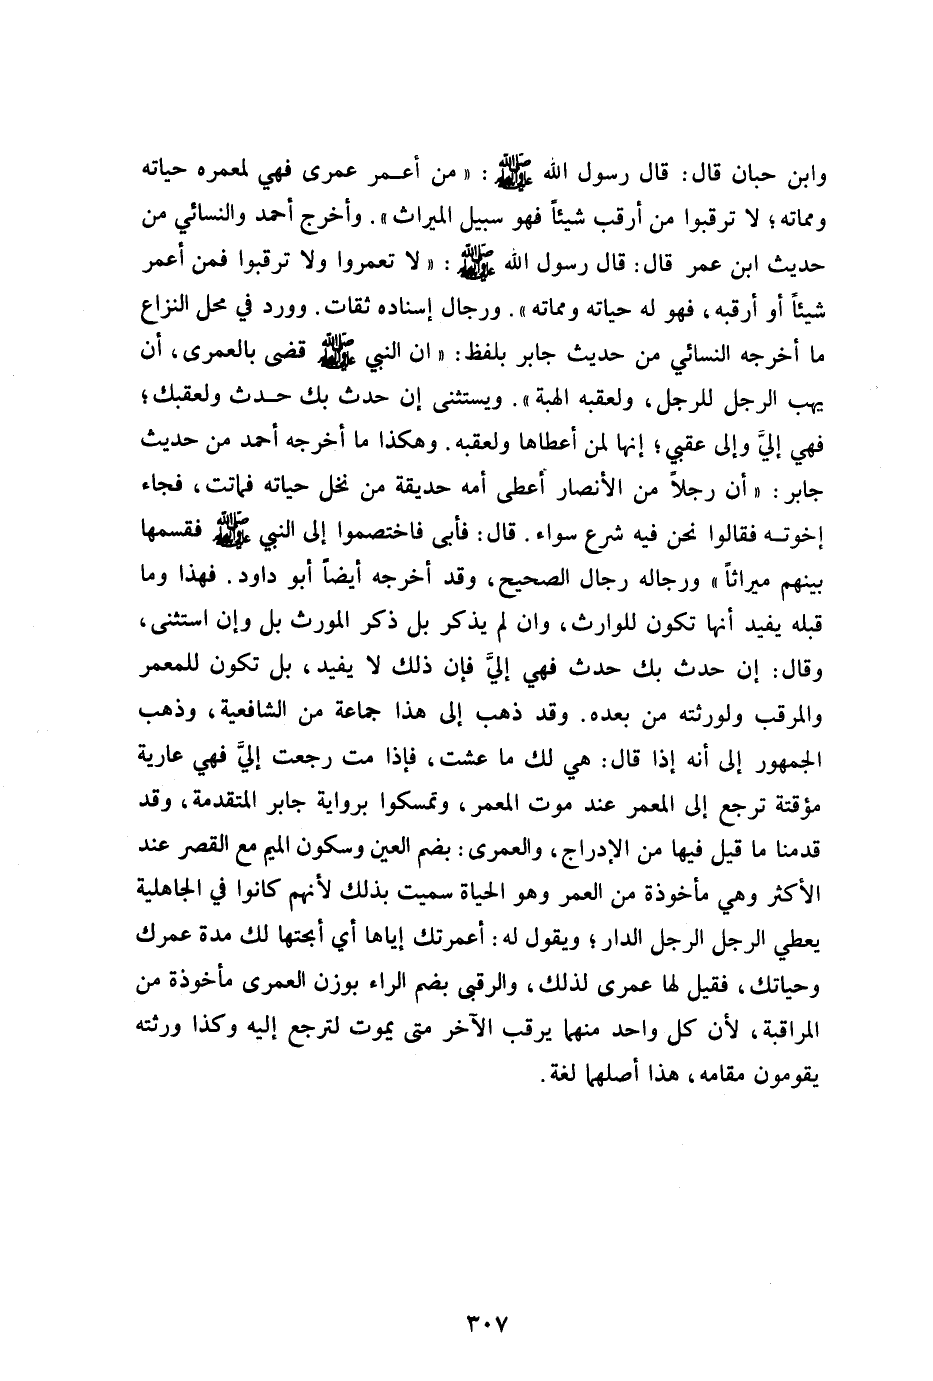 وابن حبان قال: قال رسول الله ﷺ : « من أعـمر عمرى فهي لمعمره حياته
ومماته؛ لا ترقبوا من أرقب شيئاً فهو سبيل الميراث». وأخرج أحمد والنسائي من
حديث ابن عمر قال: قال رسول الله ﷺ : « لا تعمروا ولا ترقبوا فمن أعمر
شيئاً أو أرقبه، فهو له حياته ومماته». ورجال إسناده ثقات. وورد في محل النزاع
ما أخرجه النسائي من حديث جابر بلفظ: « ان النبي ﷺ قضى بالعمرى، أن
يهب الرجل للرجل، ولعقبه الهبة». ويستثنى إن حدث بك حـدث ولعقبك؛
فهي إليَّ وإلى عقبي؛ إنها لمن أعطاها ولعقبه. وهكذا ما أخرجه أحمد من حديث
جابر: « أن رجلاً من الأنصار أعطى أمه حديقة من نخل حياته فماتت، فجاء
إخوتـه فقالوا نحن فيه شرع سواء. قال: فأبى فاختصموا إلى النبي ﷺ فقسمها
بينهم ميراثاً» ورجاله رجال الصحيح، وقد أخرجه أيضاً أبو داود. فهذا وما
قبله يفيد أنها تكون للوارث، وان لم يذكر بل ذكر المورث بل وإن استثنى،
وقال: إن حدث بك حدث فهي إليَّ فإن ذلك لا يفيد، بل تكون للمعمر
والمرقب ولورثته من بعده. وقد ذهب إلى هذا جماعة من الشافعية، وذهب
الجمهور إلى أنه إذا قال: هي لك ما عشت، فإذا مت رجعت إليَّ فهي عارية
مؤقتة ترجع إلى المعمر عند موت المعمر، وتمسكوا برواية جابر المتقدمة، وقد
قدمنا ما قيل فيها من الإدراج، والعمرى: بضم العين وسكون الميم مع القصر عند
الأكثر وهي مأخوذة من العمر وهو الحياة سميت بذلك لأنهم كانوا في الجاهلية
يعطي الرجل الرجل الدار؛ ويقول له: أعمرتك إياها أي أبحتها لك مدة عمرك
وحياتك، فقيل لها عمرى لذلك، والرقبى بضم الراء بوزن العمرى مأخوذة من
المراقبة، لأن كل واحد منهما يرقب الآخر متى يموت لترجع إليه وكذا ورثته
يقومون مقامه، هذا أصلهما لغة.
٣٠٧